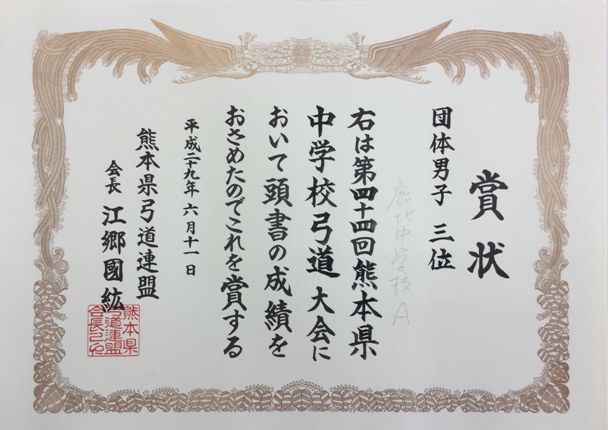 賞状
団体男子 三位
鹿北中学校 A
右は第四十四回熊本県
中学校弓道大会に
おいて頭書の成績を
おさめたのでこれを賞する
平成二十九年六月十一日
熊本県弓道連盟
会長 江郷國紘
熊本県
弓道連盟
会長之印